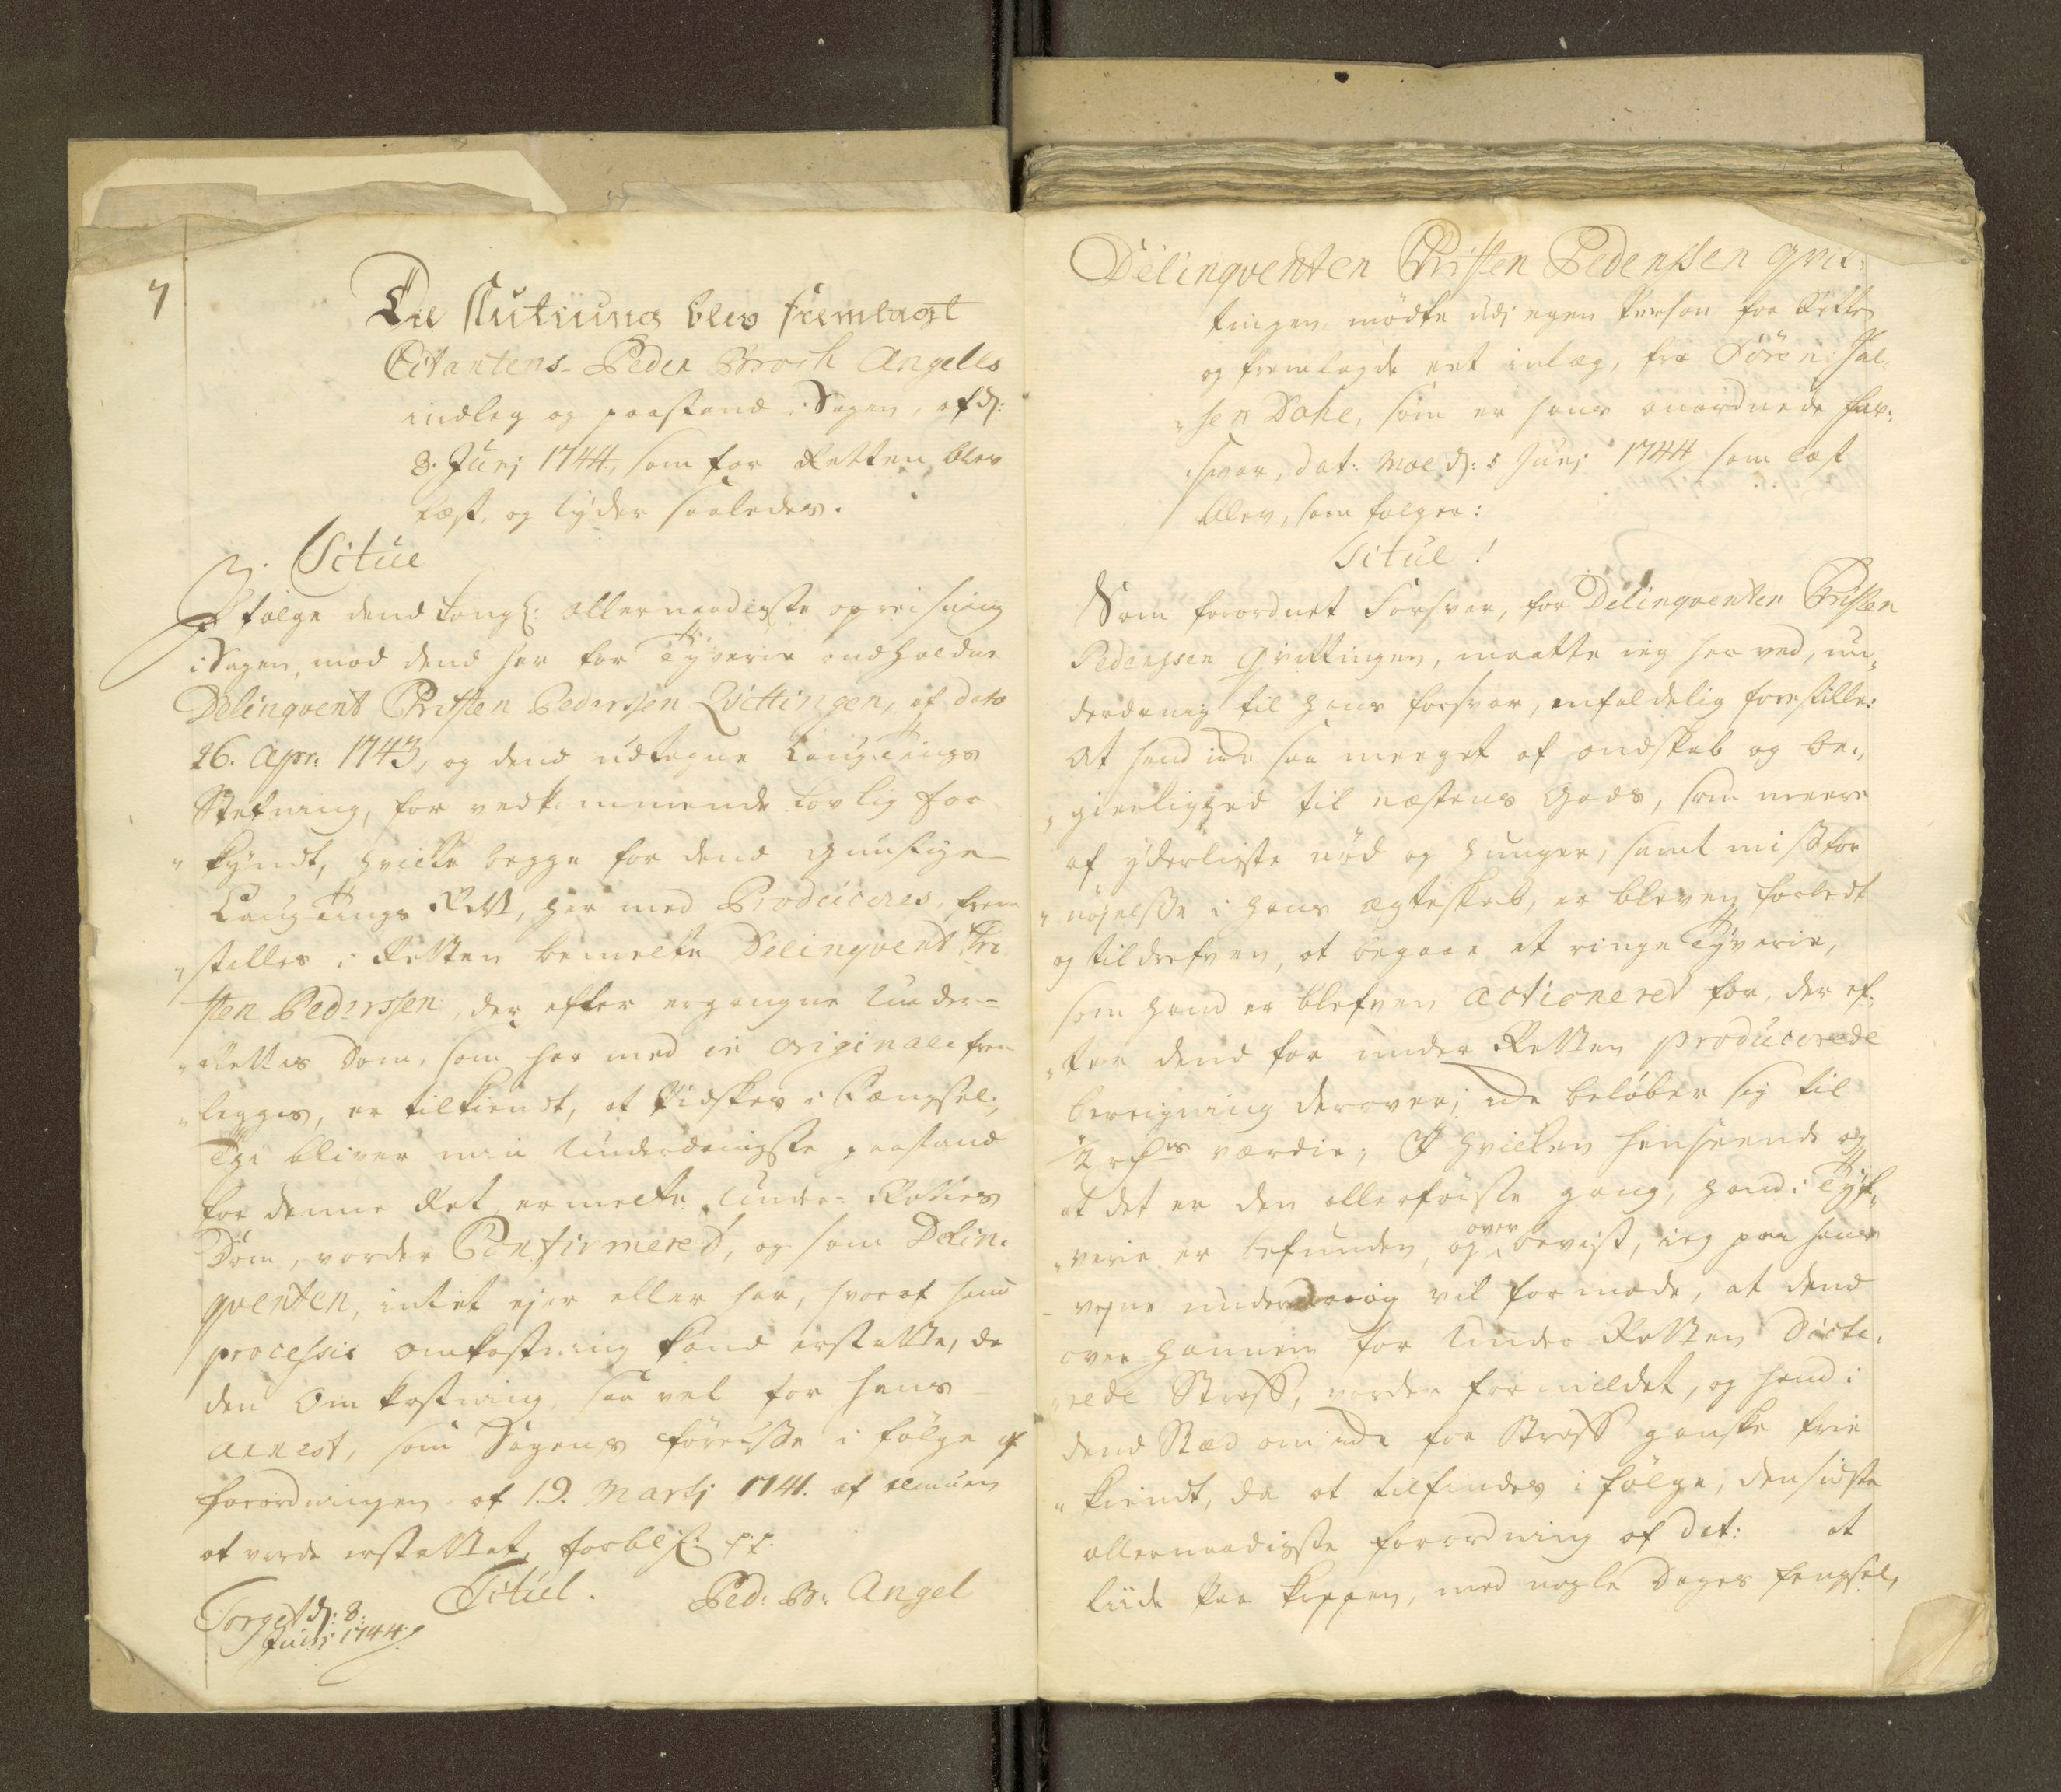 7
Til Slutning blev fremlagt
Citantens Peder Broch Angells
indleg og paastand i Sagen, af d:
8. Junj 1744, som for Retten blev
læst, og lyder saaledes.
Titul
J følge dend kongl: allernaadigste opreisning
i Sagen, mod dend her for Tyverie andholdne
Delinqvent Christen Pederssen Qvittingen, af dato
26. Apr: 1743, og dend udtagne Laug-Tings
Stefning, for vedkommende Lovlig for
„kyndt, hvilke begge for dend gunstige
Laug Tings Rett, her med Produceres, frem
„stilles i Retten bemelte Delinqvent Chri
sten Pederssen, der efter ergangne Under-
„Rettes Dom, som her med in originali frem
„legges, er tilkiendt, at kidskes i Fængsel,
Thi bliver min Underdanigste paastand
for denne Ret ermelte Under-Rettes
Dom, vorder Confirmered, og som Delin:
qventen, intet ejer eller har, hvoraf hand
processis omkostning kand erstatte, da
den Omkostning, saa vel for hans
arrest, som Sagens førelsse i følge af
forordningen af 19. Martj 1741. af almuen
at vorde erstattet, forblif: p:p:
Titul. Ped: Br: Angel
Torget d: 8:
Junj 1744
Delinqventen Christen Pederssen Qvit,
tingen mødte udj egen Person for Rette
og fremlagde eet inlæg, fra Søren Jal,
„sen Dahl, som er hans anordnede for:
„svar, dat: Moe d: 5 Junj 1744 som læst
blev, som følger:
Titul!
Som forordnet Forsvar, for Delinqventen Christen
Pederssen Qvittingen, maatte ieg her ved, un„
derdanig til hans forsvar, enfoldelig forestille:
At hand icke saa meeget af ondskab og be„
„gierlighed til næstens gods, som meere
af yderligste nød og hunger, samt misfor
„nøjelsse i hans ægteskab, er bleven forledt
og tildrefven, at begaae et ringe Tyverie,
som hand er blefven actionered for, der ef„
„ter dend for under Retten producerede
beregning derover, icke beløber sig til
2 rdrs værdie; J hvilken henseende og
at det er den allerførste gang, hand i Tyf„
„verie er befunden, og over bevist, ieg paa hans
vegne underdanig vil formode, at dend
over hannem for Under Retten Dicte„
„rede Straff, vorder formildet, og hand i
dend Sted om icke for Straff ganske frie
„kiendt, da at tilfindes i følge, den sidste
allernaadigste forordning af dat: at
liide paa kroppen, med nogle Dages fengsel,